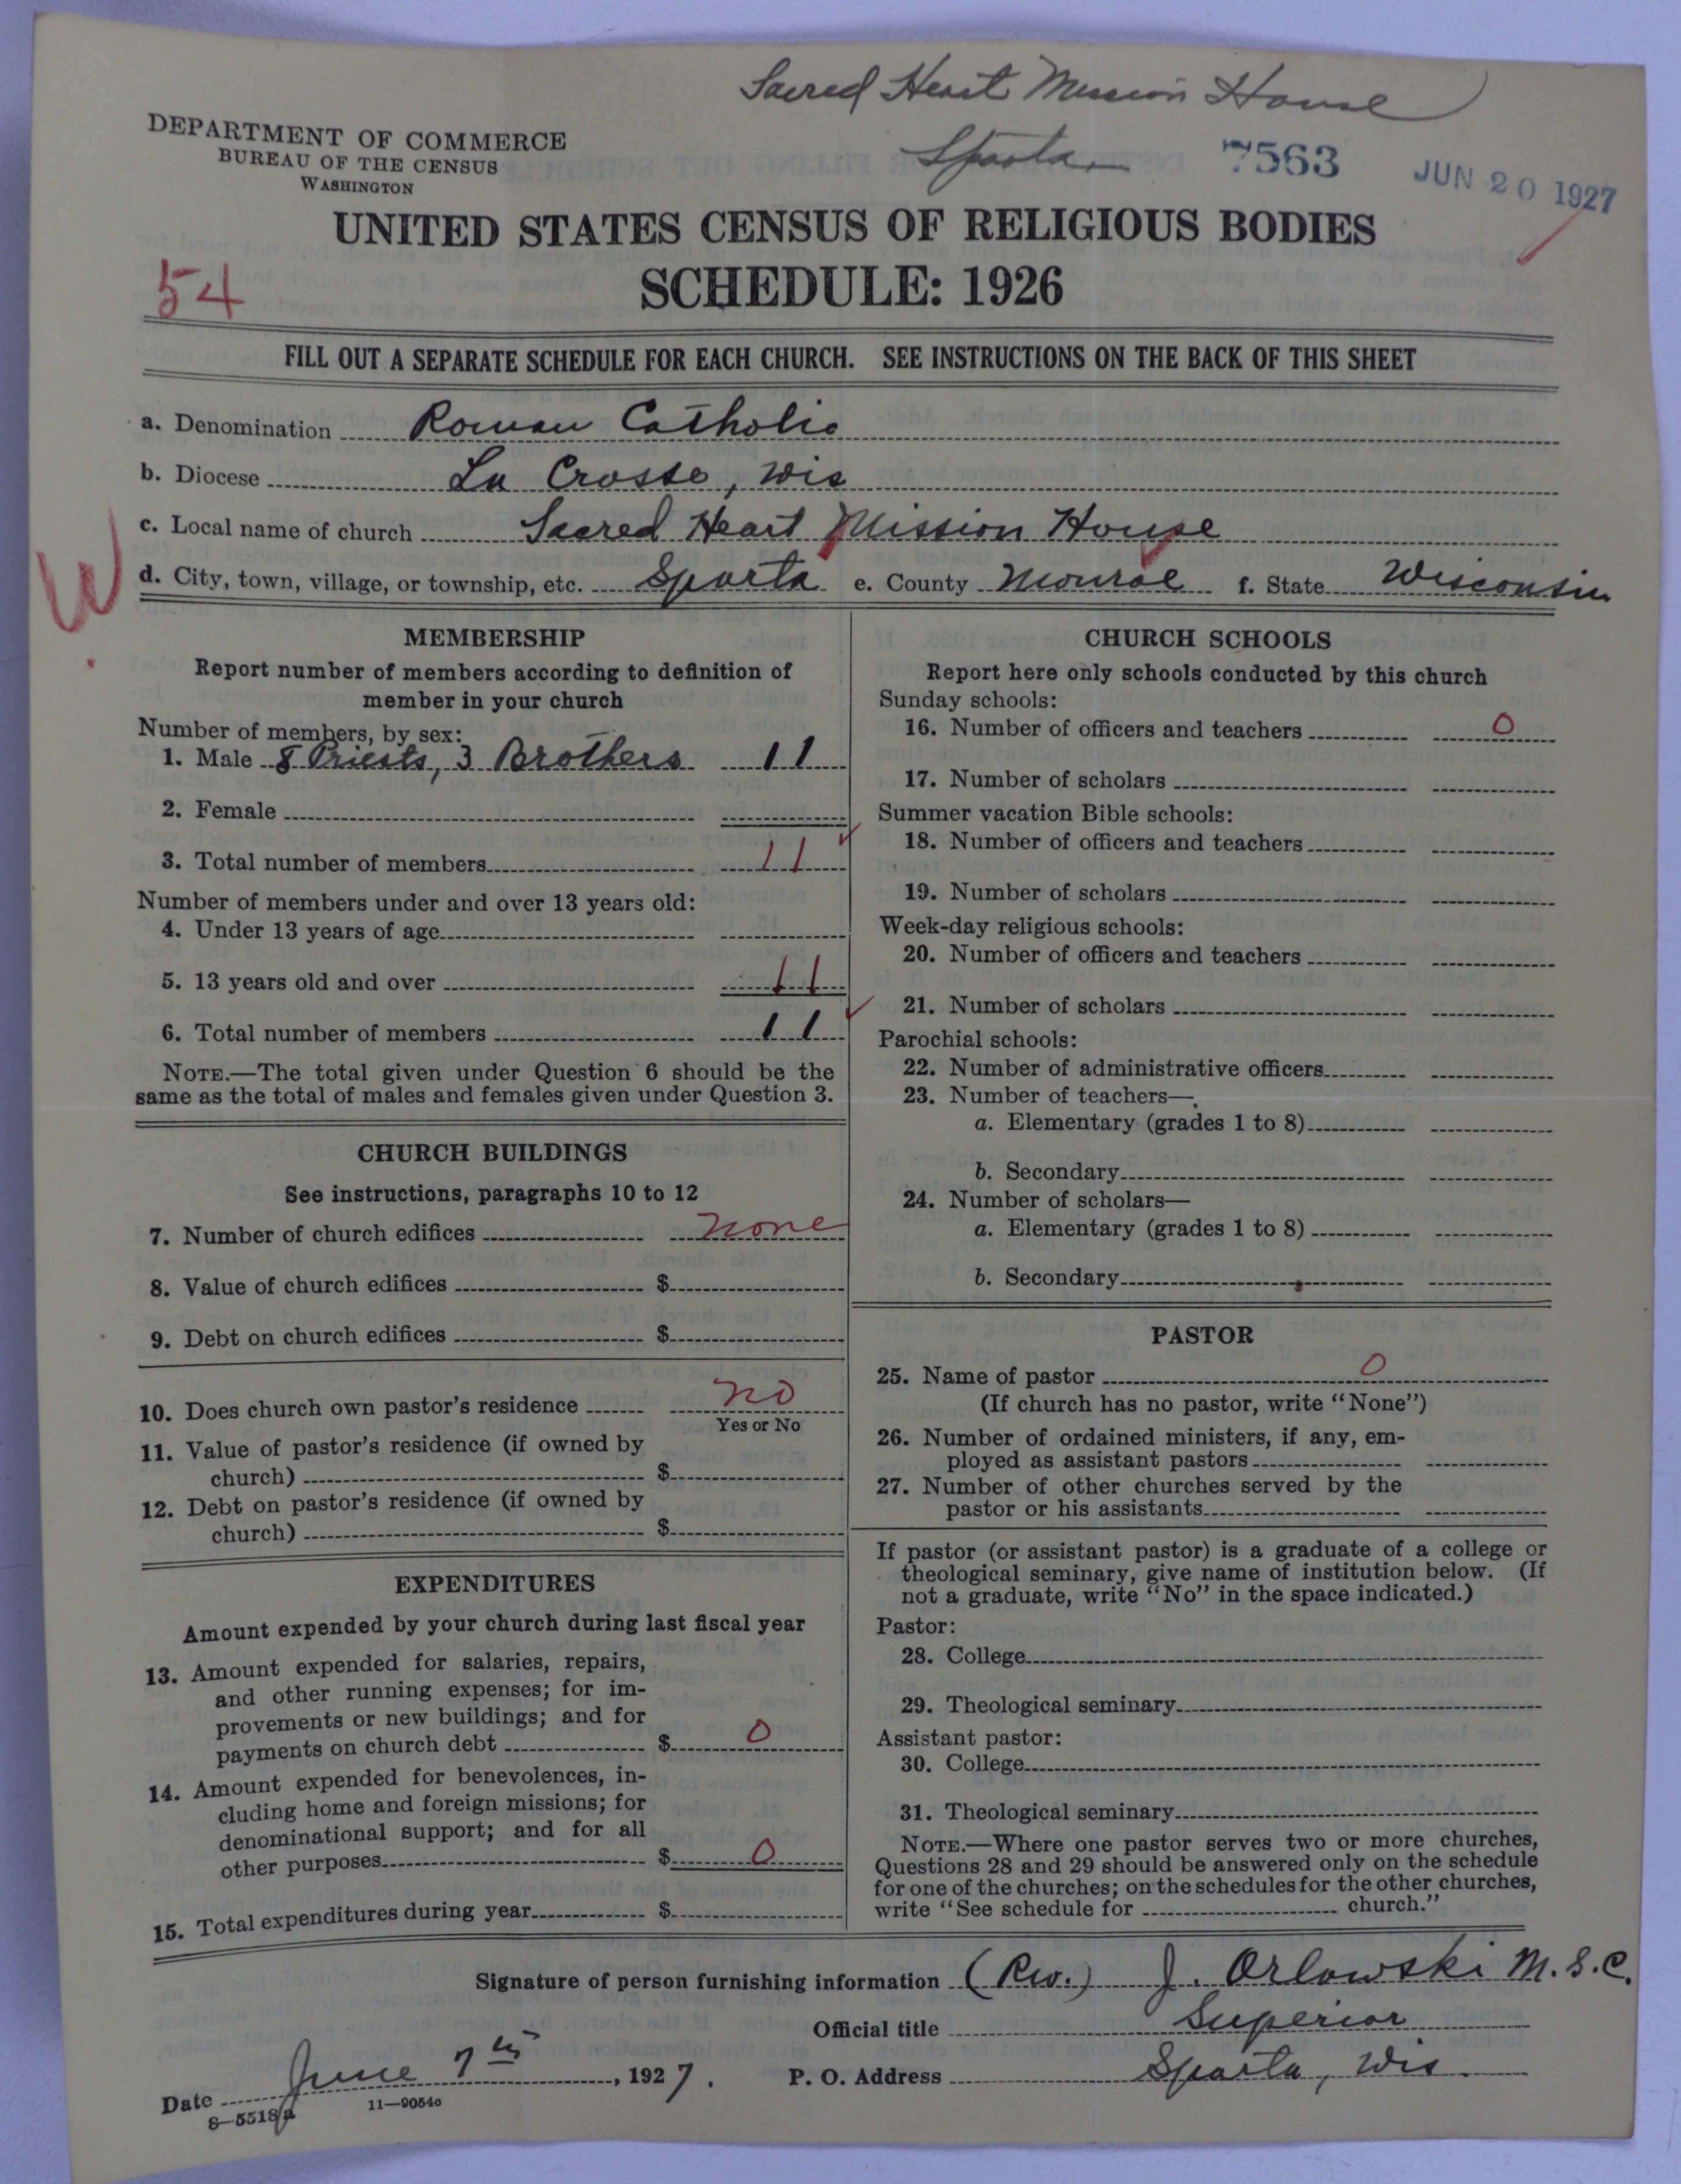 Sacred Heart Mission House
Sparta,
7563
JUN 20 1927
DEPARTMENT OF COMMERCE
BUREAU OF THE CENSUS
WASHINGTON
UNITED STATES CENSUS OF RELIGIOUS BODIES
54
SCHEDULE: 1926
FILL OUT A SEPARATE SCHEDULE FOR EACH CHURCH. SEE INSTRUCTIONS ON THE BACK OF THIS SHEET
a. Denomination Roman Catholic
b. Diocese La Crosse, Wis
c. Local name of church Sacred Heart Mission House
W
d. City, town, village, or township, etc. Sparta e. County Monroe f. State Wisconsin
MEMBERSHIP
Report number of members according to definition of
member in your church
Number of members, by sex:
1. Male 8 Priests, 3 Brothers 11
2. Female
3. Total number of members 11
Number of members under and over 13 years old:
4. Under 13 years of age
5. 13 years old and over 11
6. Total number of members 11
NOTE.—The total given under Question 6 should be the
same as the total of males and females given under Question 3.
CHURCH BUILDINGS
See instructions, paragraphs 10 to 12
7. Number of church edifices none
8. Value of church edifices $
9. Debt on church edifices $
10. Does church own pastor's residence no
Yes or No
11. Value of pastor's residence (if owned by
church) $
12. Debt on pastor's residence (if owned by
church) $
EXPENDITURES
Amount expended by your church during last fiscal year
13. Amount expended for salaries, repairs,
and other running expenses; for im-
provements or new buildings; and for
payments on church debt $ 0
14. Amount expended for benevolences, in-
cluding home and foreign missions; for
denominational support; and for all
other purposes $ 0
15. Total expenditures during year $
CHURCH SCHOOLS
Report here only schools conducted by this church
Sunday schools:
16. Number of officers and teachers 0
17. Number of scholars
Summer vacation Bible schools:
18. Number of officers and teachers
19. Number of scholars
Week-day religious schools:
20. Number of officers and teachers
21. Number of scholars
Parochial schools:
22. Number of administrative officers
23. Number of teachers—
a. Elementary (grades 1 to 8)
b. Secondary
24. Number of scholars—
a. Elementary (grades 1 to 8)
b. Secondary
PASTOR
25. Name of pastor 0
(If church has no pastor, write "None")
26. Number of ordained ministers, if any, em-
ployed as assistant pastors
27. Number of other churches served by the
pastor or his assistants
If pastor (or assistant pastor) is a graduate of a college or
theological seminary, give name of institution below. (If
not a graduate, write "No" in the space indicated.)
Pastor:
28. College
29. Theological seminary
Assistant pastor:
30. College
31. Theological seminary
NOTE.—Where one pastor serves two or more churches,
Questions 28 and 29 should be answered only on the schedule
for one of the churches; on the schedules for the other churches,
write "See schedule for church."
Signature of person furnishing information (Rev.) J. Orlowski M.S.C.
Official title Superior
Date June 7th, 1927. P. O. Address Sparta, Wis.
8—5518a 11—9054c